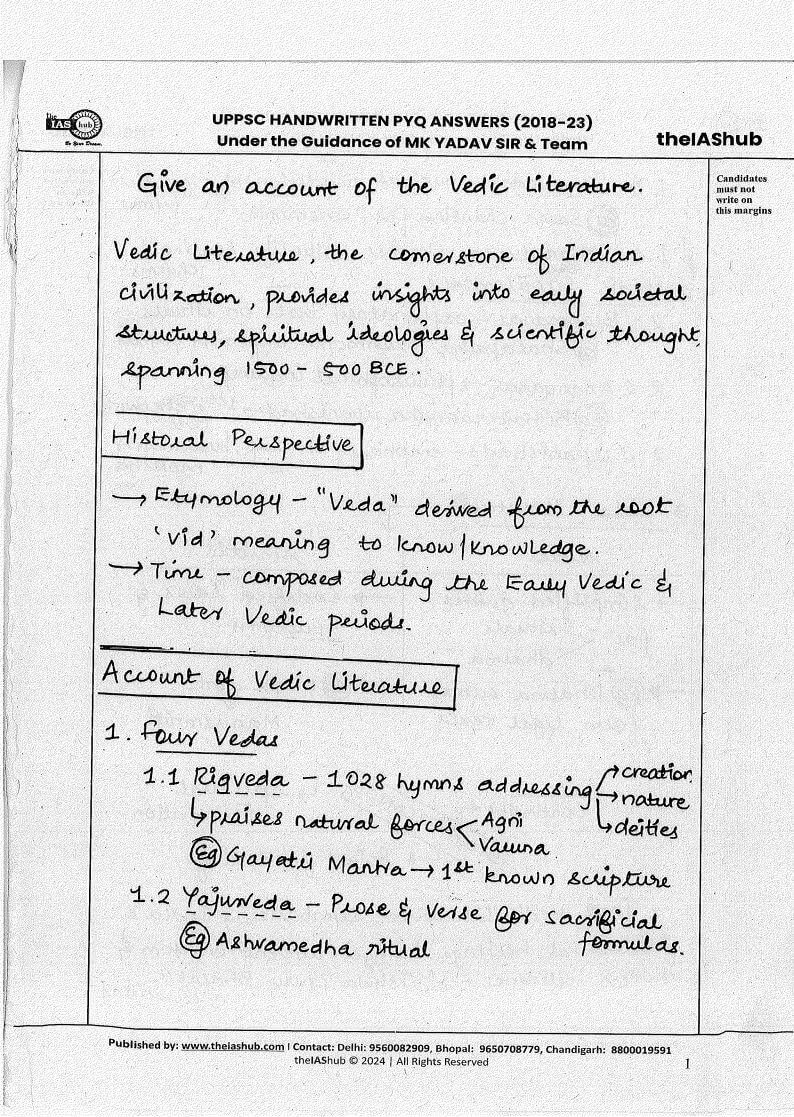 The
IAS hub
Be Your Dream.
UPPSC HANDWRITTEN PYQ ANSWERS (2018-23)
Under the Guidance of MK YADAV SIR & Team
theIAShub
Candidates
must not
write on
this margins
Give an account of the Vedic Literature.
Vedic Literature, the cornerstone of Indian
civilization, provides insights into early societal
structures, spiritual ideologies & scientific thought,
spanning 1500 - 500 BCE.
Historal Perspective
→ Etymology - "Veda" derived from the root
'vid' meaning to know/knowledge.
→ Time - composed during the Early Vedic &
Later Vedic periods.
Account of Vedic Literature
1. Four Vedas
1.1 Rigveda - 1028 hymns addressing → creation
→ nature
→ deities
↳ praises natural forces < Agni
Varuna
Eg Gayatri Mantra → 1st known scripture
1.2 Yajurveda - Prose & verse for sacrificial
formulas.
Eg Ashwamedha ritual
Published by: www.theiashub.com | Contact: Delhi: 9560082909, Bhopal: 9650708779, Chandigarh: 8800019591
theIAShub © 2024 | All Rights Reserved
1